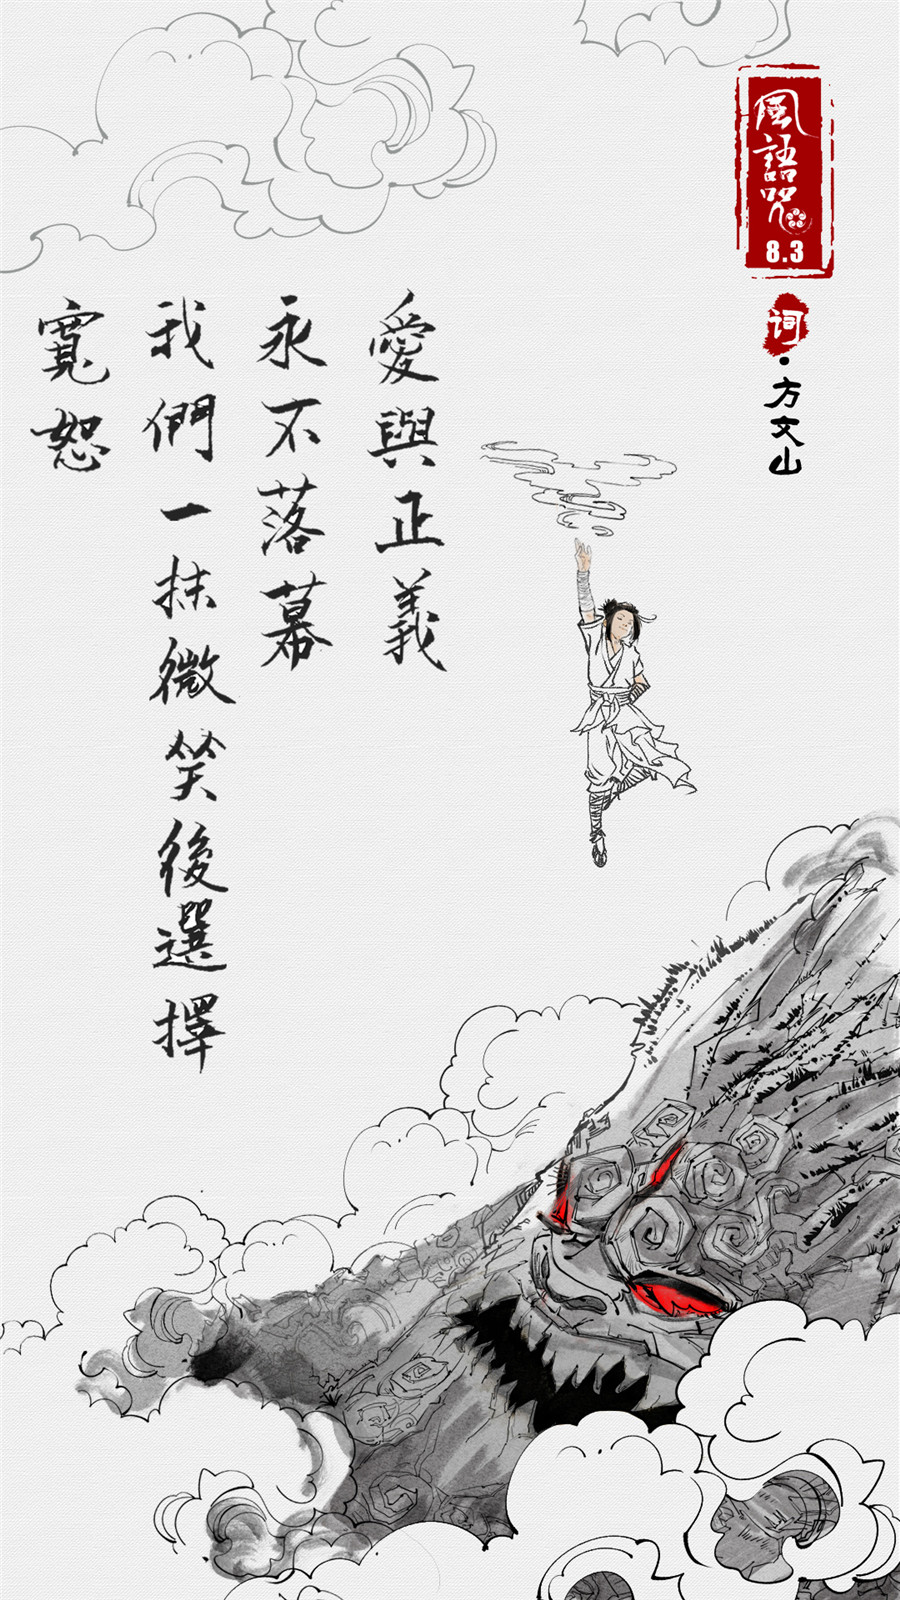 風語咒
8.3
词·方文山
愛與正義
永不落幕
我們一抹微笑後選擇
寬恕